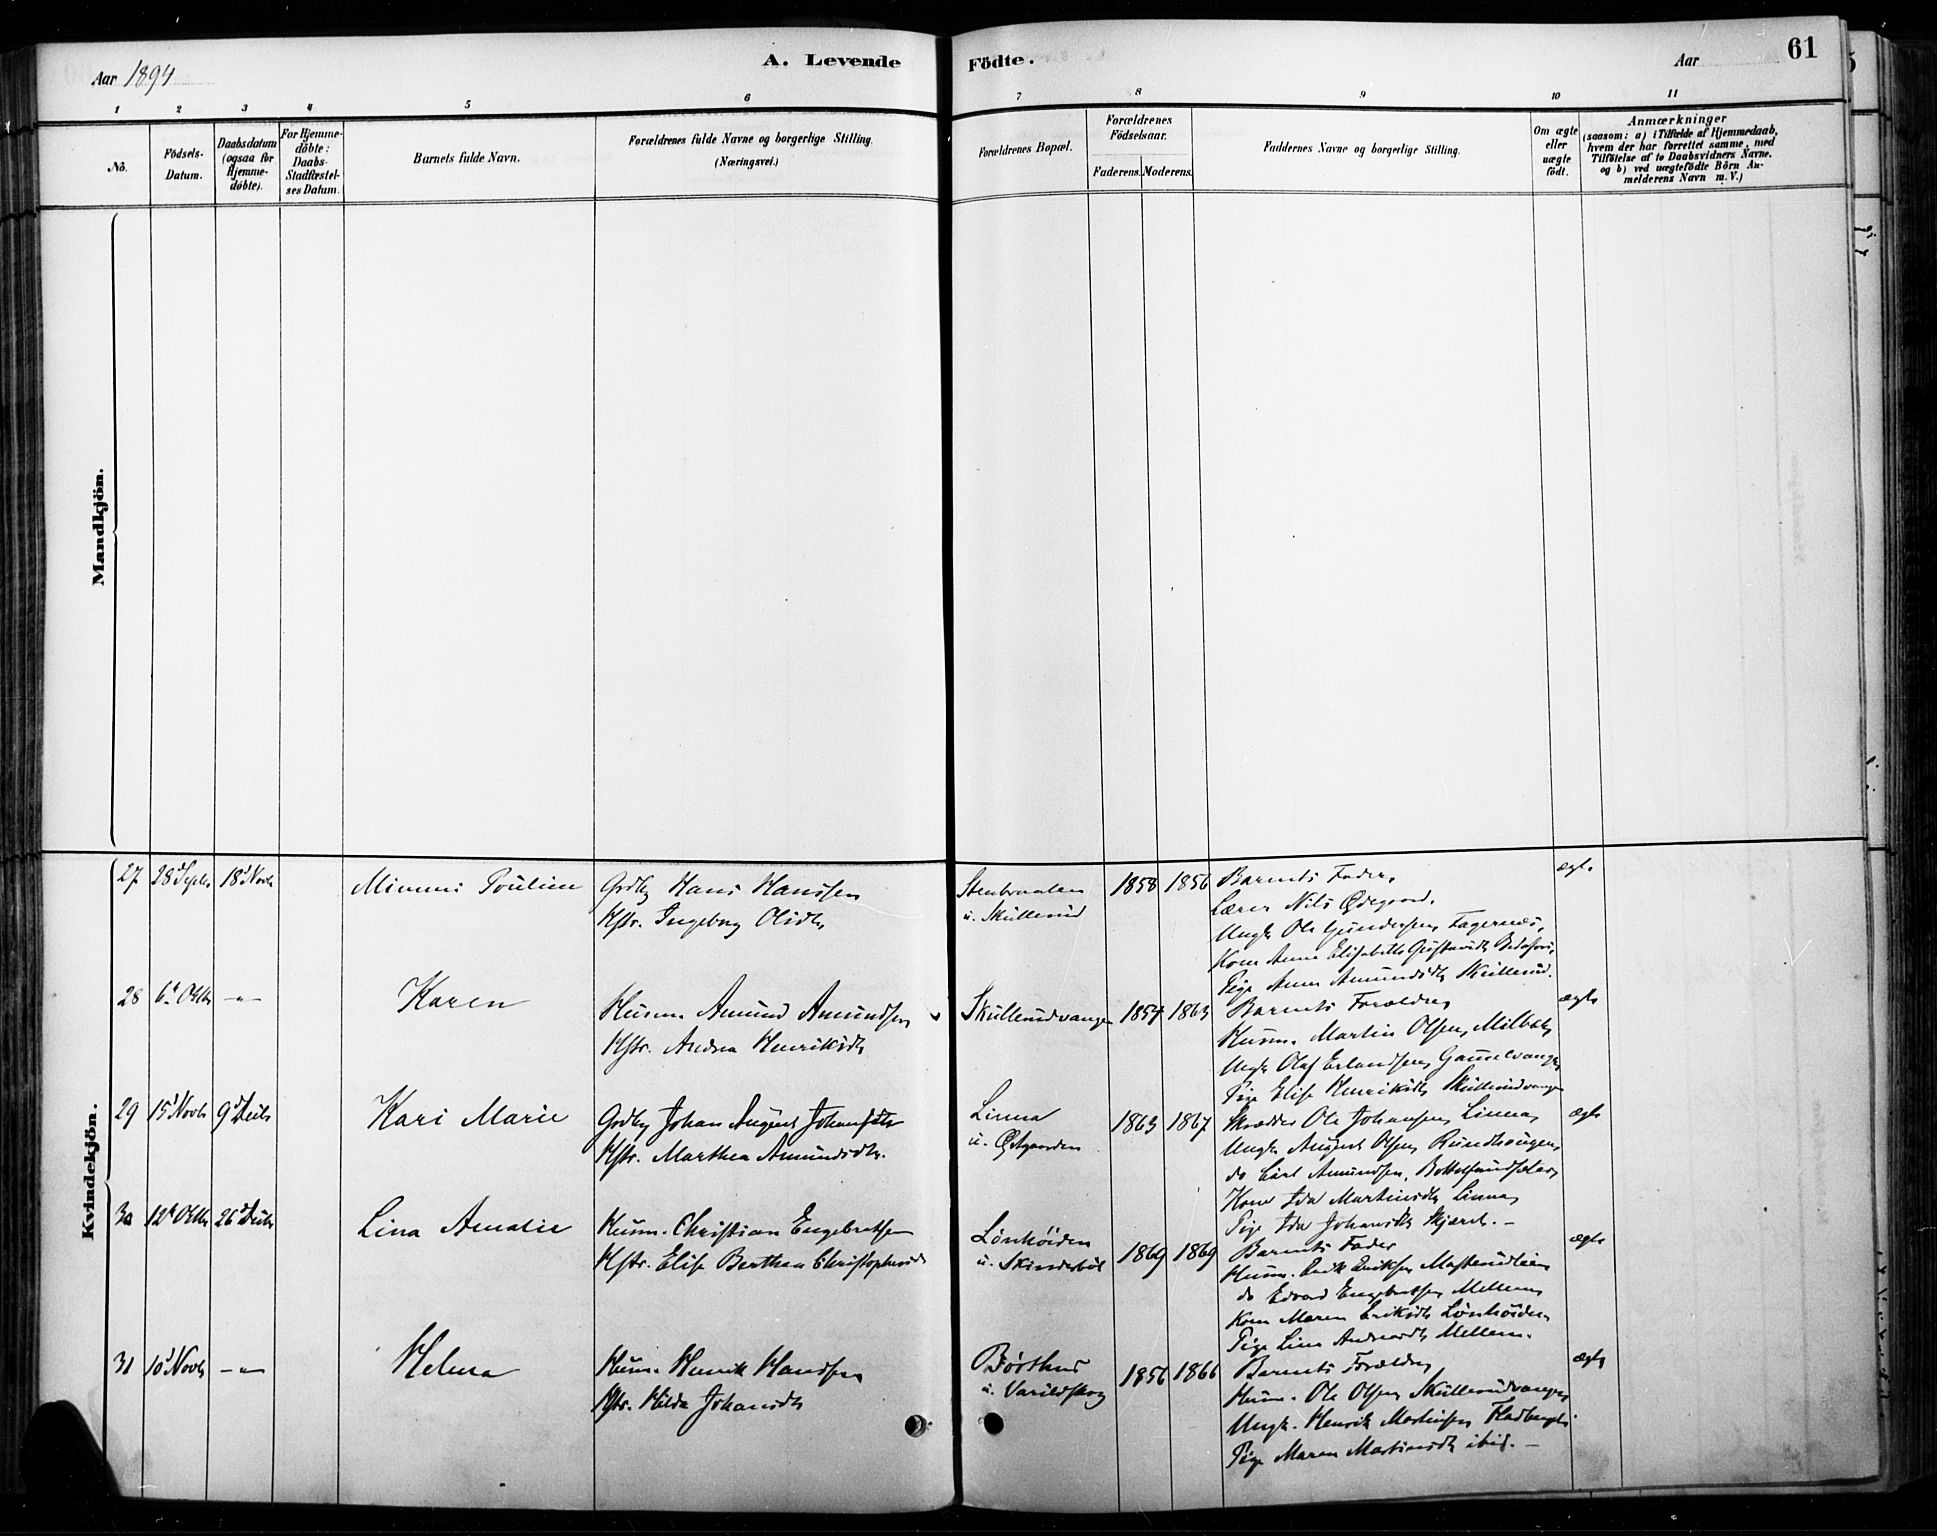 Aar 1894
A. Levende
Födte.
Aar
61
1 2 3 4 5 6 7 8 9 10 11
No.
Födsels-
Datum.
Daabsdatum
(ogsaa for
Hjemme-
döbte).
For Hjemme-
döbte:
Daabs-
Stadfæstel-
ses Datum.
Barnets fulde Navn.
Forældrenes fulde Navne og borgerlige Stilling.
(Næringsvei.)
Forældrenes Bopæl.
Forældrenes
Födselsaar.
Faderens. Moderens.
Faddernes Navne og borgerlige Stilling.
Om ægte
eller
uægte
födt.
Anmærkninger
(saasom: a) i Tilfælde af Hjemmedaab,
hvem der har forrettet samme, med
Tilföielse af to Daabsvidners Navne.
og b) ved uægtefödte Börn An-
melderens Navn m. V.)
Mandkjön.
Kvindekjön.
27 28d Septr 18d Novbr
Mimmi Pouline
Grdbr Hans Hanssen
Hstr. Ingeborg Olsdtr
Stenbraaten
u. Skullerud
1858 1856
Barnets Fader,
Lærer Nils Ødegaard,
Ungk Ole Gundersen, Fagernæs,
Kone Anne Elisabeth Gustavsdtr
Pige Anne Amundsdtr Skullerud.
ægte
28 6te Oktbr -"-
Karen
Husm. Amund Amundsen
Hstr. Andrea Henriksdtr
Skullerudvangen
1854 1863
Barnets Forældre,
Husm. Martin Olsen,
Ungk Olaf Erlandsen,
Pige Elise Henriksdtr, Skullerudvangen
ægte
29 15d Novbr 9d Decbr
Kari Marie
Grdbr Johan August Johansen
Hstr. Marthea Amundsdtr.
Linna
u. Østgaarden
1863 1867
Skrædder Ole Johansen, Linna,
Ungk August Olsen, Rundhaugen,
do Carl Amundsen,
Kone Ida Martinsdtr Linna,
Pige Ida Johansdtr
ægte
30 12te Oktbr 26d Decbr
Lina Amalie
Husm. Christian Engebretsen
Hstr. Elise Berthea Christophersdtr
Lönhöiden
u. Skinderböl
1869 1869
Barnets Fader
Husm. Erik Eriksen
do Edvard Engebretsen Mellem,
Kone Maren Eriksdtr Lönhöiden.
Pige Lina Andreasdtr Mellem.
ægte
31 10d Novbr -"-
Helma
Husm. Henrik Hansen
Hstr. Hilda Johansdtr
Børthus
u. Varildskog
1856 1866
Barnets Forældre,
Husm. Ole Olsen, Skullerudvangen,
Ungk. Henrik Martinsen
Pige Maren Martinsdtr ibid. -
ægte